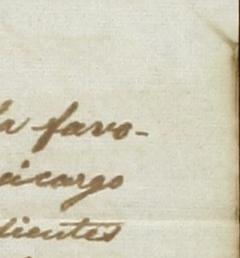 la favo-
á cargo
dientes